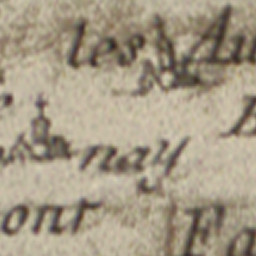 les Au
nay
ont Fa